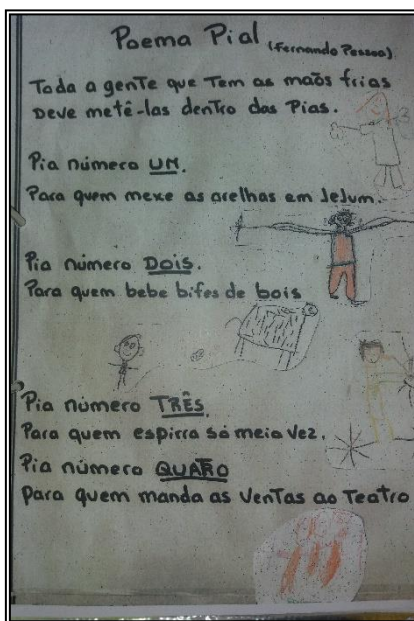 Poema Pial (Fernando Pessoa)
Toda a gente que Tem as maõs frias
Deve metê-las dentro das Pias.
Pia número UM.
Para quem mexe as orelhas em Jejum.
Pia número DOIS.
Para quem bebe bifes de bois
Pia número TRÊS.
Para quem espirra só meia vez.
Pia número QUATRO
Para quem manda as Ventas ao Teatro